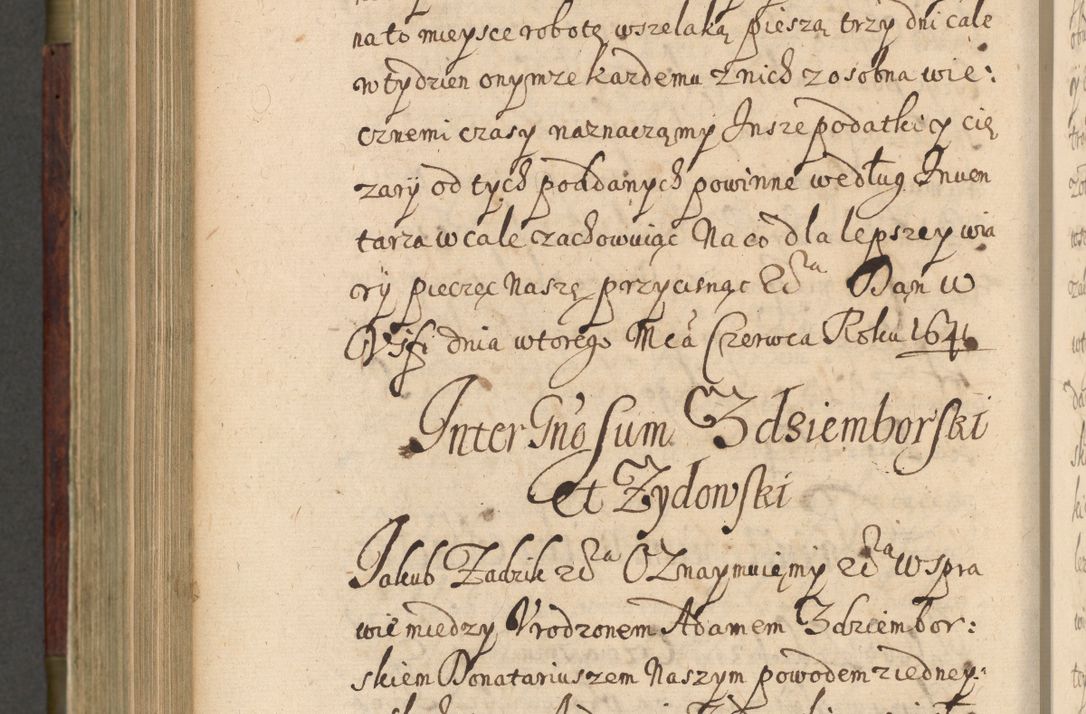 na to mieysce robotę wszelaką pieszą trzy dni cale
w tydzien onymze kazdemu z nich z osobna wie:
cznemi czasy naznaczamy Insze podatki y cię
zary od tych poddanych powinne według Inuen
tarza w cale zachowuiąc Na co dla lepszey wia
ry pieczęc Naszę przycisnąc &c̃ra Dan w
dnia wtorego Mca Czerwca Roku 1641
Inter Gno sum Zdziemborski
et Zydowski
Jakub Zadzik &c̃ra Oznaymuięmy &c̃ra W spra
wie miedzy Vrodzonem Adamem Zdziembor:
skiem Donatariuszem Naszym powodem z iedney: